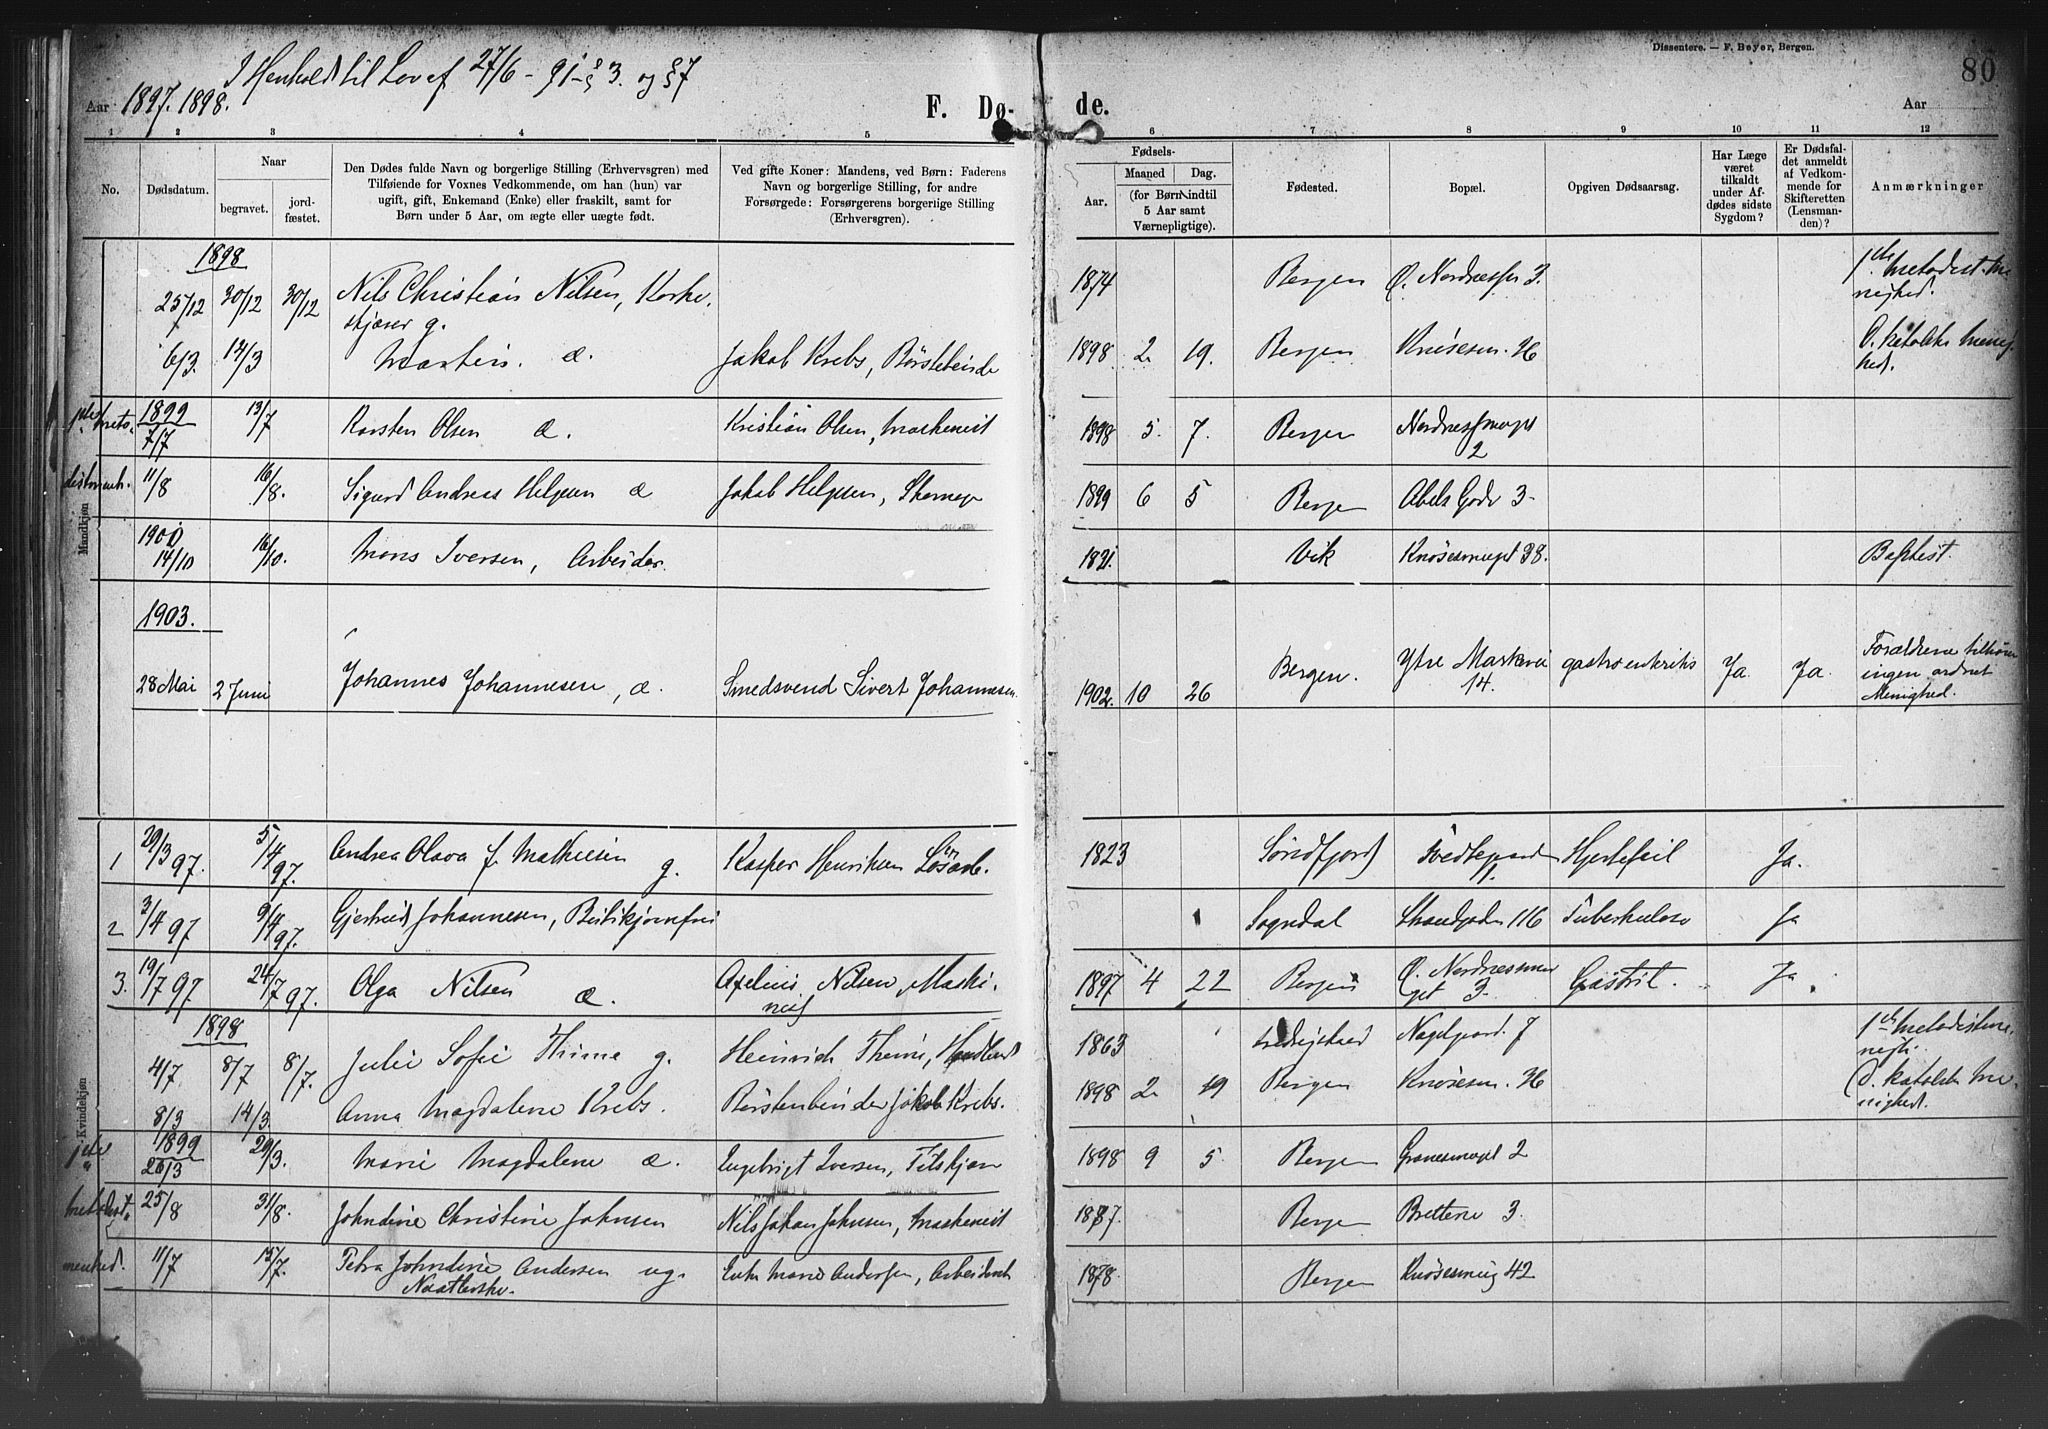 Dissentere. — F. Beyer, Bergen.
80
I Henhold til Lov af 27/6 - 91 - § 3. og § 7
Aar 1897. 1898.
F. Dø-
de.
Aar
1 2 3 4 5 6 7 8 9 10 11 12
No.
Dødsdatum.
Naar
begravet.
jord-
fæstet.
Den Dødes fulde Navn og borgerlige Stilling (Erhvervsgren) med
Tilføiende for Voxnes Vedkommende, om han (hun) var
ugift, gift, Enkemand (Enke) eller fraskilt, samt for
Børn under 5 Aar, om ægte eller uægte født.
Ved gifte Koner: Mandens, ved Børn: Faderens
Navn og borgerlige Stilling, for andre
Forsørgede: Forsørgerens borgerlige Stilling
(Erhversgren).
Fødsels-
Aar.
Maaned
Dag.
(for Børn indtil
5 Aar samt
Værnepligtige).
Fødested.
Bopæl.
Opgiven Dødsaarsag.
Har Læge
været
tilkaldt
under Af-
dødes sidste
Sygdom?
Er Dødsfal-
det anmeldt
af Vedkom-
mende for
Skifteretten
(Lensman-
den)?
Anmærkninger
Mandkjøn
1898
25/12 30/12 30/12 Nils Christian Nilsen, Korke- 1874 Bergen Ø. Nordnessm 3. 1ste Metodist. Me-
skjærer g. nighed.
6/3. 14/3 Martin. æ. Jakob Krebs, Børstebinde 1898 2 19. Bergen Knøsesm. 36 D. katolske Menig-
hed.
1899
7/7 13/7 Karsten Olsen æ. Kristian Olsen, Maskenist 1898 5. 7. Bergen Nordnessmuget
2
11/8 16/8. Sigurd Andreas Helgesen æ Jakob Helgesen, 1899 6 5 Bergen Abels Gade 3
1900
14/10 16/10. Mons Iversen, Arbeider. 1821. Vik Knøsesmuget 38. Baptist.
1903.
28 Mai 2 Juni Johannes Johannesen, æ. Smedsvend Sivert Johannesen. 1902. 10 26 Bergen. Ytre Markevei gastroenteritis Ja. Ja. Forældrene tilhører
14. ingen ordnet
Menighed.
Kvindekjøn
1 29/3 97. 5/4 97. Andrea Olava f. Mathiesen g. Kasper Henriksen Løsarb. 1823 Søndfjord Tvedtegaarden Hjertefeil Ja.
11.
2 3/4 97 9/4 97. Gjertrud Johannesen, Sogndal Strandgaden 116 Tuberkulose Ja
3. 19/7 97 24/7 97. Olga Nilsen æ. Axelius Nilsen, Maski- 1897 4 22 Bergen Ø. Nordnesmu Gastrit. Ja
nist get 3.
1898
4/7 8/7 8/7. Julie Sofie Thime g. Heinrich Thime, 1863 Fredrikstad Nagelgaard. 7 1ste Metodistme-
nigh.
8/3 14/3. Anna Magdalene Krebs. Børstenbinder Jakob Krebs. 1898 2 19 Bergen Knøsesm. 36 D. katolske Me-
nighed.
1899
26/3 29/3. Marie Magdalene æ. Engebrigt Iversen, 1898 9 5 Bergen Granesmuget 2
25/8 31/8. Johndine Christine Johnsen Nils Johan Johnsen, Maskenist 1887. Bergen Brettene 3.
11/7 15/7. Petra Johndine Andersen ug. Enke Marie Andersen, 1878. Bergen Knøsesmug 42